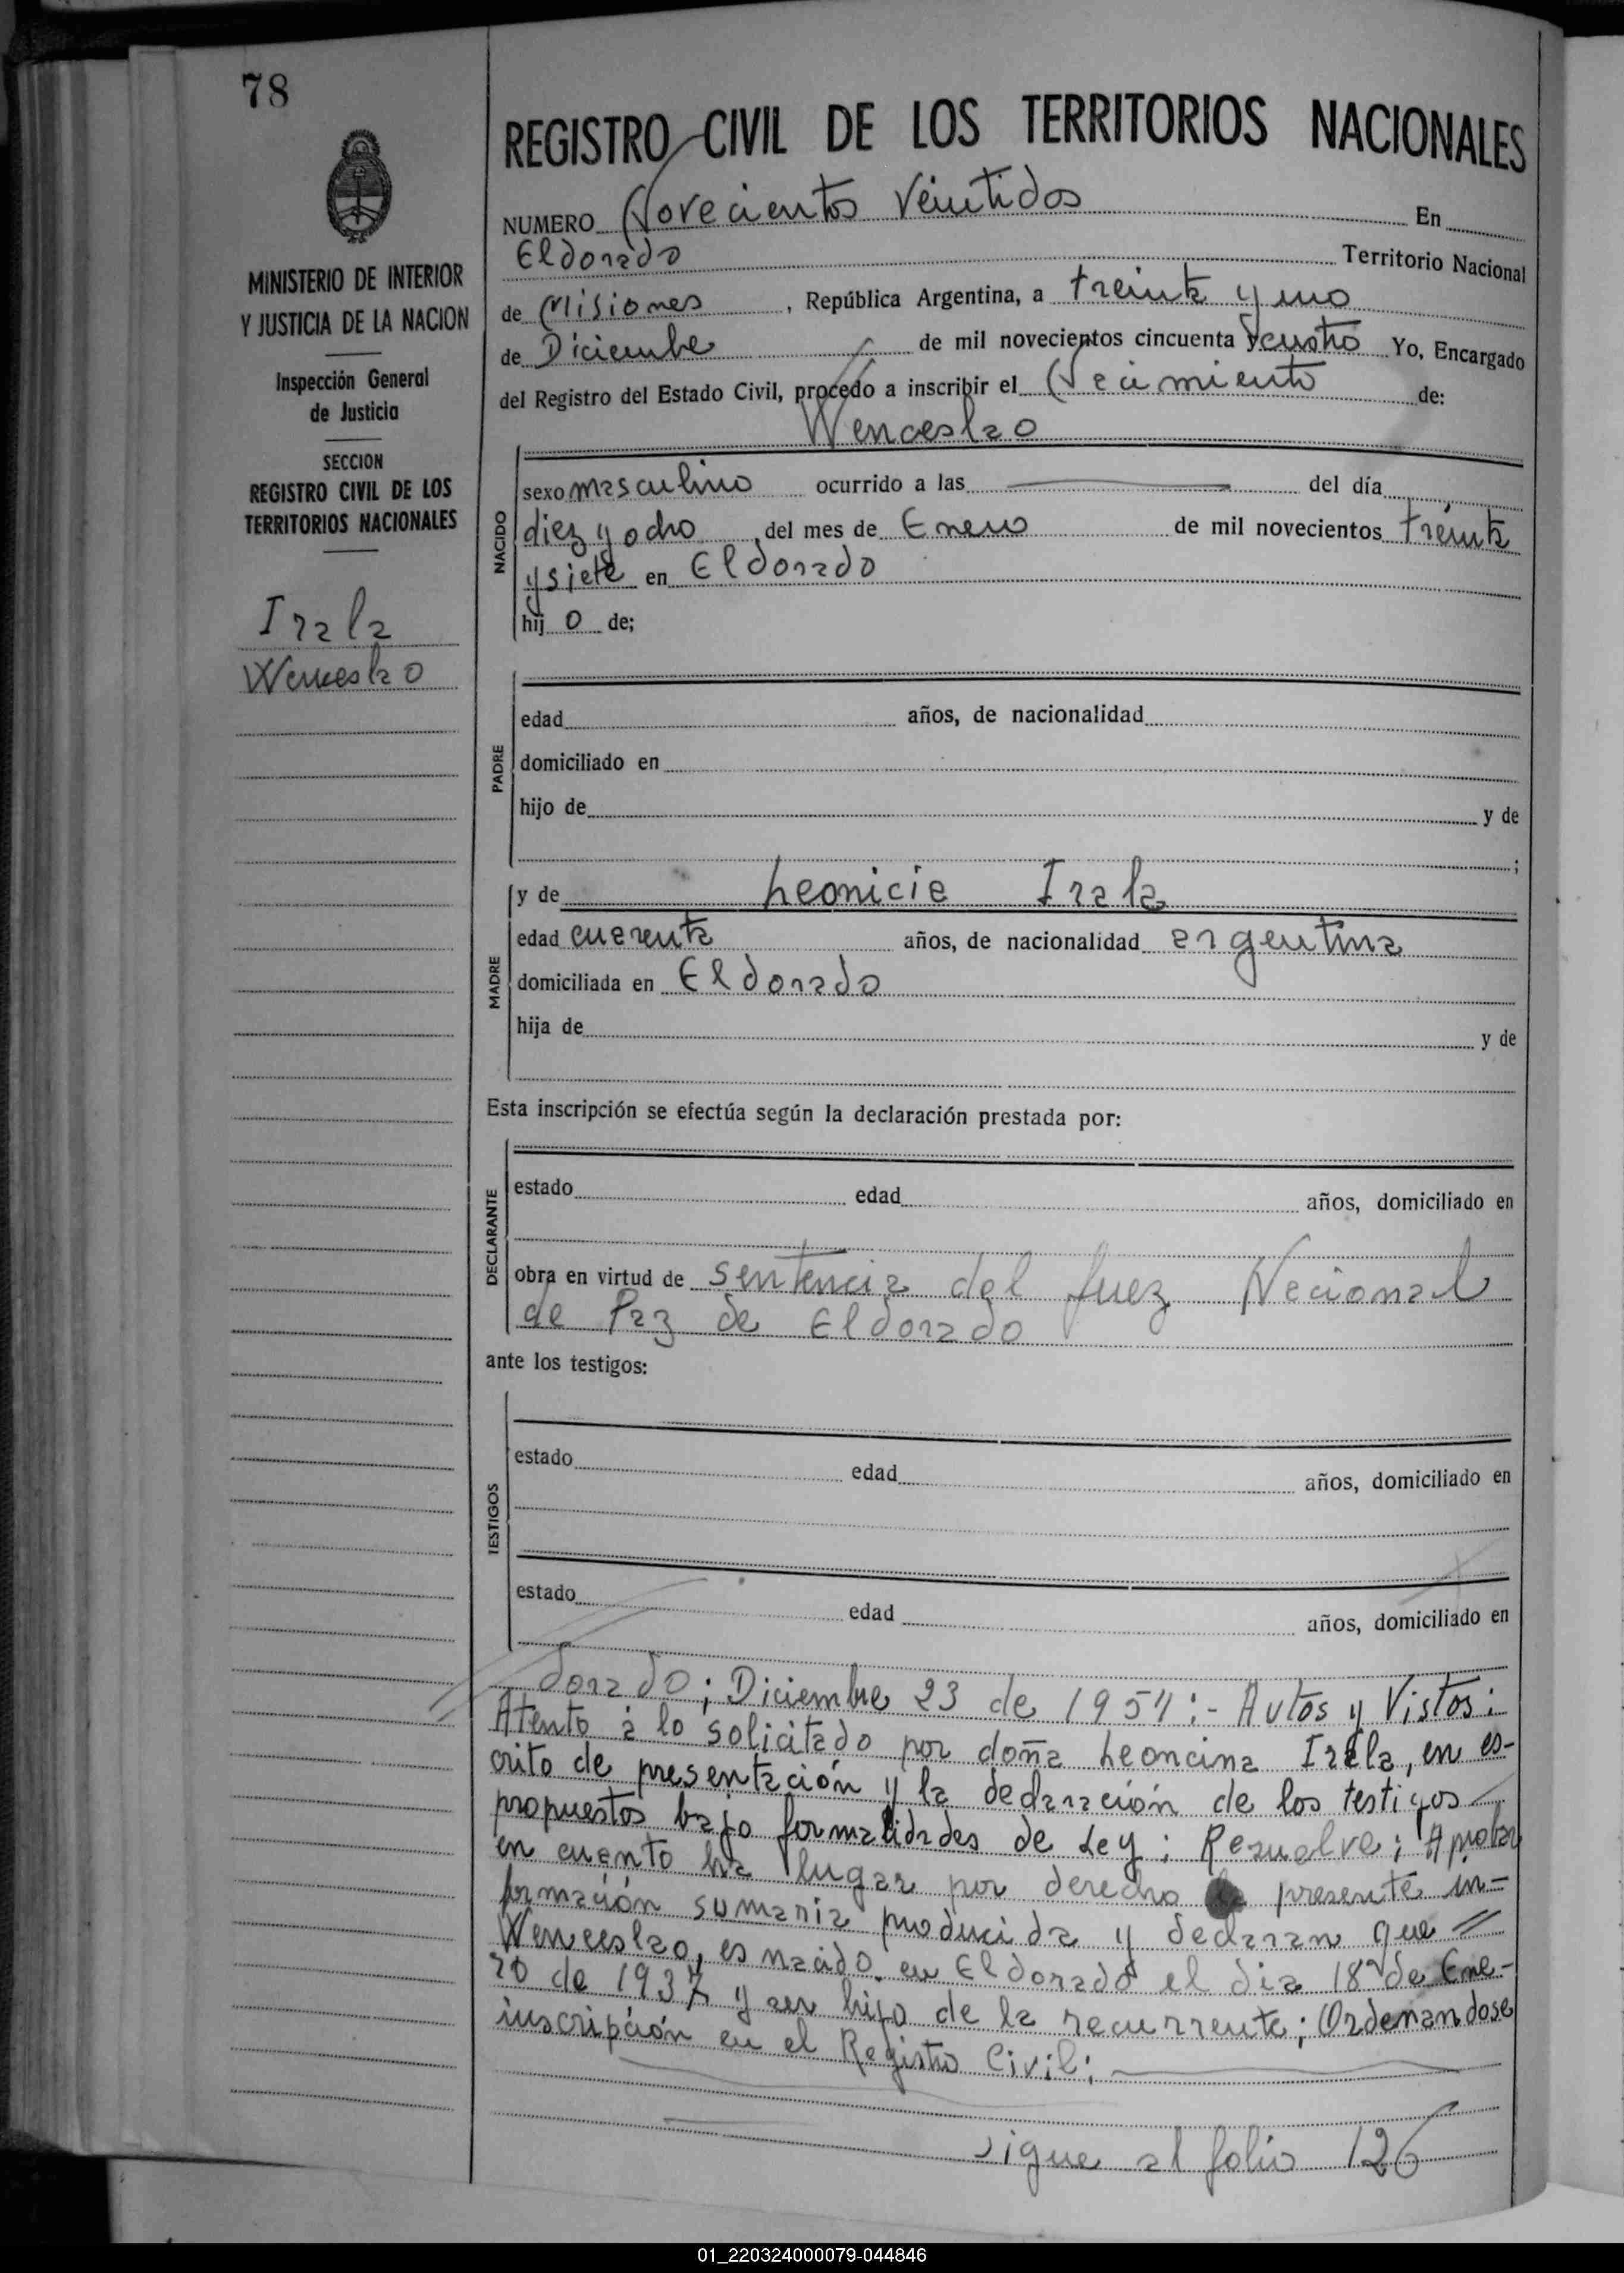 78
MINISTERIO DE INTERIOR
Y JUSTICIA DE LA NACION
Inspección General
de Justicia
SECCION
REGISTRO CIVIL DE LOS
TERRITORIOS NACIONALES
Irala
Wenceslao
REGISTRO CIVIL DE LOS TERRITORIOS NACIONALES
NUMERO Novecientos Veintidos En
Eldorado Territorio Nacional
de Misiones, República Argentina, a treinta y uno
de Diciembre de mil novecientos cincuenta y cuatro Yo, Encargado
del Registro del Estado Civil, procedo a inscribir el Nacimiento de:
Wenceslao
NACIDO
sexo masculino ocurrido a las del día
diez y ocho del mes de Enero de mil novecientos treinta
y siete en Eldorado
hij o de;
PADRE
edad años, de nacionalidad
domiciliado en
hijo de y de
;
MADRE
y de Leonicia Irala
edad cuarenta años, de nacionalidad argentina
domiciliada en Eldorado
hija de y de
Esta inscripción se efectúa según la declaración prestada por:
DECLARANTE
estado edad años, domiciliado en
obra en virtud de sentencia del Juez Nacional
de Paz de Eldorado
ante los testigos:
TESTIGOS
estado edad años, domiciliado en
estado edad años, domiciliado en
dorado; Diciembre 23 de 1954:- Autos y Vistos:
Atento a lo solicitado por doña Leoncina Irala, en es-
crito de presentación y la declaración de los testigos
propuestos bajo formalidades de Ley; Resuelve; Aprobar
en cuanto ha lugar por derecho la presente in-
formación sumaria producida y declaran que =
Wenceslao, es nacido en Eldorado el dia 18 de Ene-
ro de 1937 y ser hijo de la recurrente; Ordenandose
inscripción en el Registro Civil;
sigue al folio 126
01_220324000079-044846